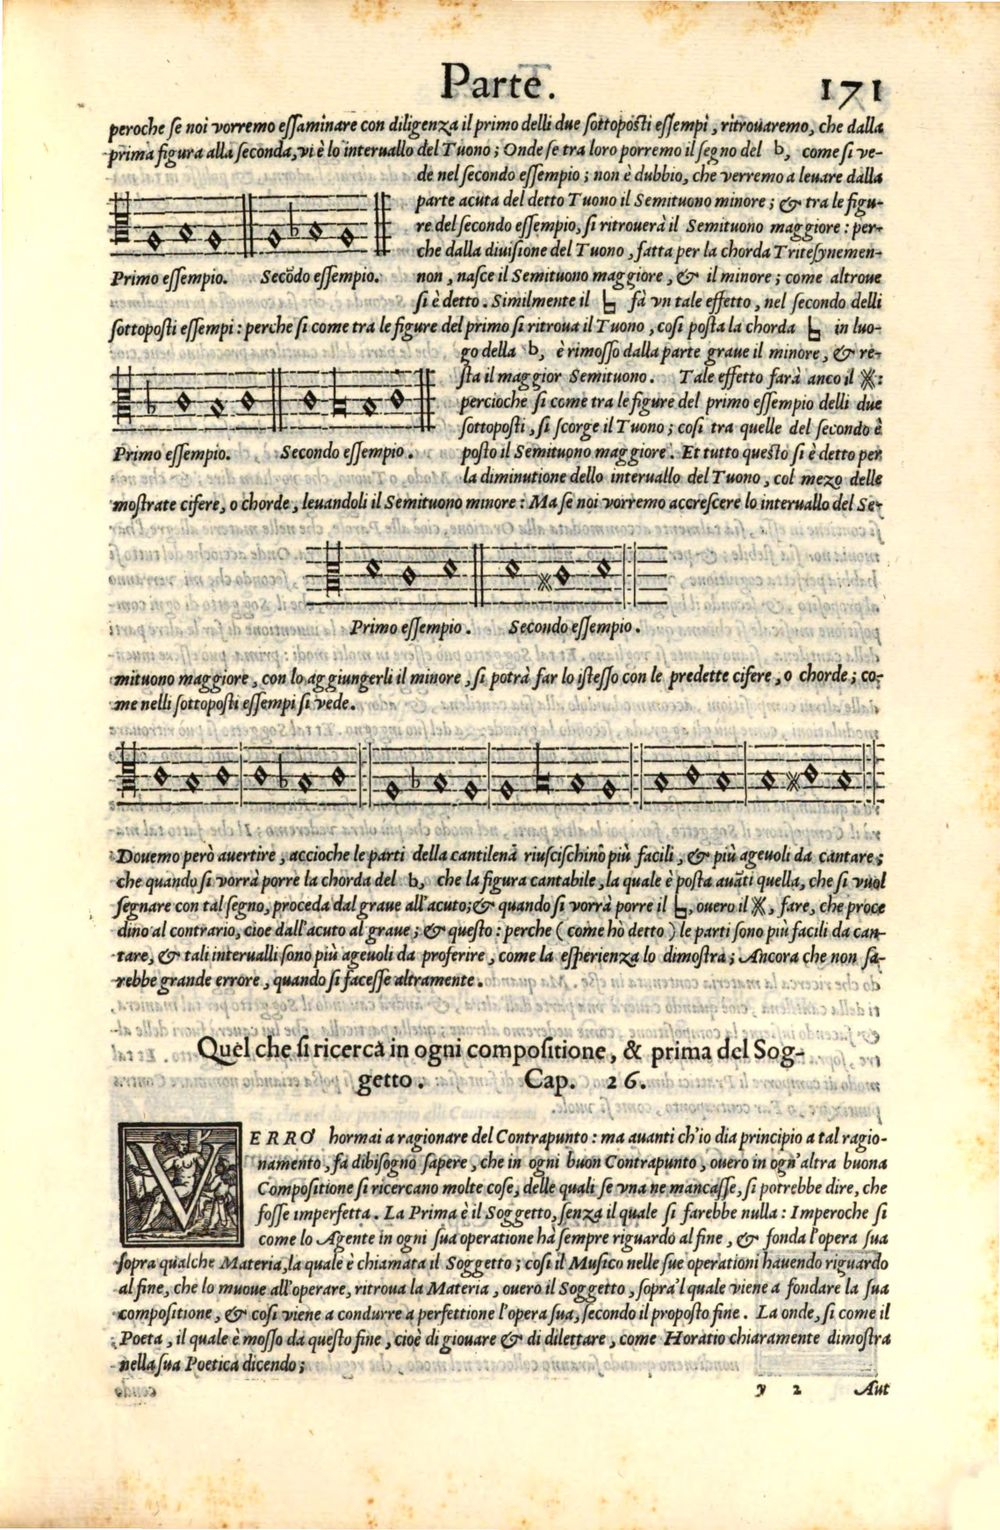 Parte. 171
peroche ſe noi vorremo eſſaminare con diligenza il primo delli due ſottopoſti eſſempi, ritrouaremo, che dalla
prima figura alla ſeconda, vi è lo interuallo del Tuono; Onde ſe tra loro porremo il ſegno del ♭, come ſi ve-
de nel ſecondo eſſempio; non è dubbio, che verremo a leuare dalla
parte acuta del detto Tuono il Semituono minore; & tra le figu-
re del ſecondo eſſempio, ſi ritrouerà il Semituono maggiore: per-
che dalla diuiſione del Tuono, fatta per la chorda Triteſynemen-
Primo eſſempio. Secōdo eſſempio. non, naſce il Semituono maggiore, & il minore; come altroue
ſi è detto. Similmente il ♮ fà vn tale effetto, nel ſecondo delli
ſottopoſti eſſempi: perche ſi come tra le figure del primo ſi ritroua il Tuono, coſi poſta la chorda ♮ in luo-
go della ♭, è rimoſſo dalla parte graue il minore, & re-
ſta il maggior Semituono. Tale effetto farà anco il 𝄪:
percioche ſi come tra le figure del primo eſſempio delli due
ſottopoſti, ſi ſcorge il Tuono; coſi tra quelle del ſecondo è
Primo eſſempio. Secondo eſſempio. poſto il Semituono maggiore. Et tutto queſto ſi è detto per
la diminutione dello interuallo del Tuono, col mezo delle
moſtrate cifere, o chorde, leuandoli il Semituono minore: Ma ſe noi vorremo accreſcere lo interuallo del Se-
Primo eſſempio. Secondo eſſempio.
mituono maggiore, con lo aggiungerli il minore, ſi potrà far lo iſteſſo con le predette cifere, o chorde; co-
me nelli ſottopoſti eſſempi ſi vede.
Douemo però auertire, accioche le parti della cantilena riuſciſchino più facili, & più ageuoli da cantare;
che quando ſi vorrà porre la chorda del ♭, che la figura cantabile, la quale è poſta auāti quella, che ſi vuol
ſegnare con tal ſegno, proceda dal graue all'acuto; & quando ſi vorrà porre il ♮, ouero il 𝄪, fare, che proce
dino al contrario, cioe dall'acuto al graue; & queſto: perche (come hò detto) le parti ſono più facili da can-
tare, & tali interualli ſono più ageuoli da proferire, come la eſperienza lo dimoſtra; Ancora che non ſa-
rebbe grande errore, quando ſi faceſſe altramente.
Quel che ſi ricerca in ogni compoſitione, & prima del Sog-
getto. Cap. 26.
VERRO' hormai a ragionare del Contrapunto: ma auanti ch'io dia principio a tal ragio-
namento, fà dibiſogno ſapere, che in ogni buon Contrapunto, ouero in ogn'altra buona
Compoſitione ſi ricercano molte coſe, delle quali ſe vna ne mancaſſe, ſi potrebbe dire, che
foſſe imperfetta. La Prima è il Soggetto, ſenza il quale ſi farebbe nulla: Imperoche ſi
come lo Agente in ogni ſua operatione hà ſempre riguardo al fine, & fonda l'opera ſua
ſopra qualche Materia, la quale è chiamata il Soggetto; coſi il Muſico nelle ſue operationi hauendo riguardo
al fine, che lo muoue all'operare, ritroua la Materia, ouero il Soggetto, ſopra'l quale viene a fondare la ſua
compoſitione, & coſi viene a condurre a perfettione l'opera ſua, ſecondo il propoſto fine. La onde, ſi come il
Poeta, il quale è moſſo da queſto fine, cioè di giouare & di dilettare, come Horatio chiaramente dimoſtra
nella ſua Poetica dicendo;
y 2 Aut